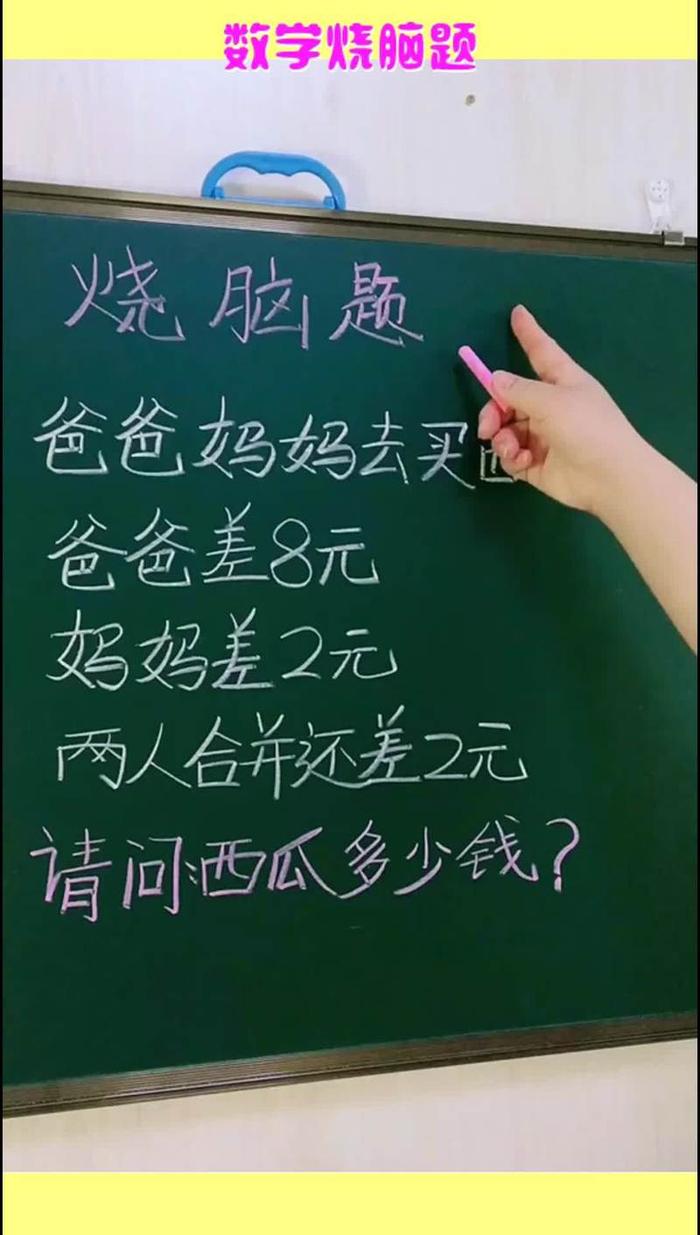 数学烧脑题
烧脑题
爸爸妈妈去买
爸爸差8元
妈妈差2元
两人合并还差2元
请问:西瓜多少钱?